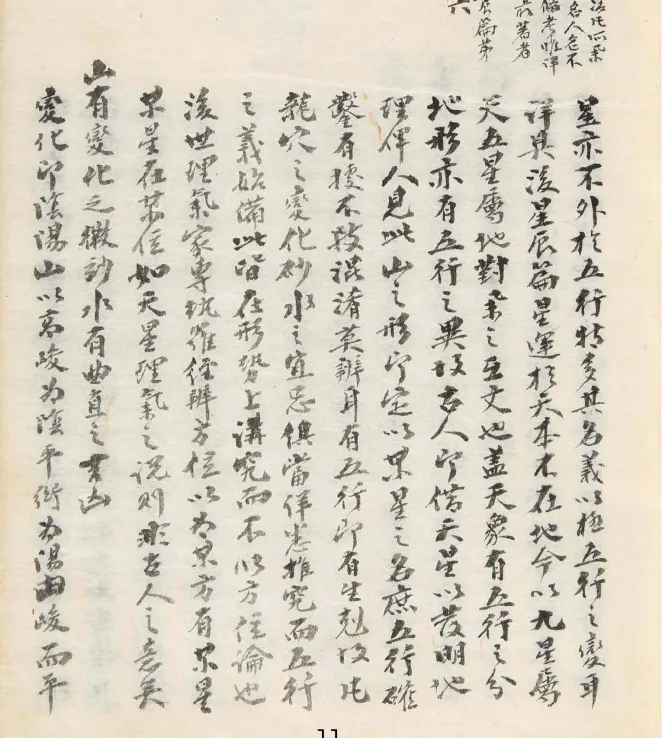 法凡四家
名人色不
備考惟詳
最著者
辰篇第
六
星亦不外於五行特多其名義以極五行之變耳
詳具後星辰篇星運於天本不在地今以九星屬
天五星屬地對榘之互文也蓋天象有五行之分
地形亦有五行之異故古人即借天星以發明地
理俾人見此山之形即定以某星之名庶五行確
鑿有據不致混淆莫辨耳有五行即有生剋故凡
龍穴之變化砂水之宜忌俱當詳悉推究而五行
之義始備此皆在形勢上講究而不以方位論也
後世理氣家專執羅經辨方位以為某方有某星
某星在某位如天星理氣之說則非古人之意矣
山有變化之微砂水有曲直之
變化即陰陽山以高峻為陰平衍為陽由峻而平
11